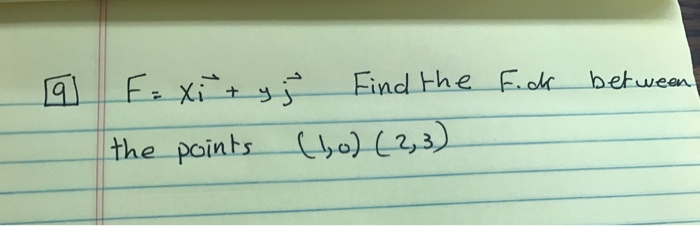 9 F = xi⃗ + yj⃗ Find the F.dr between
the points (1,0) (2,3)